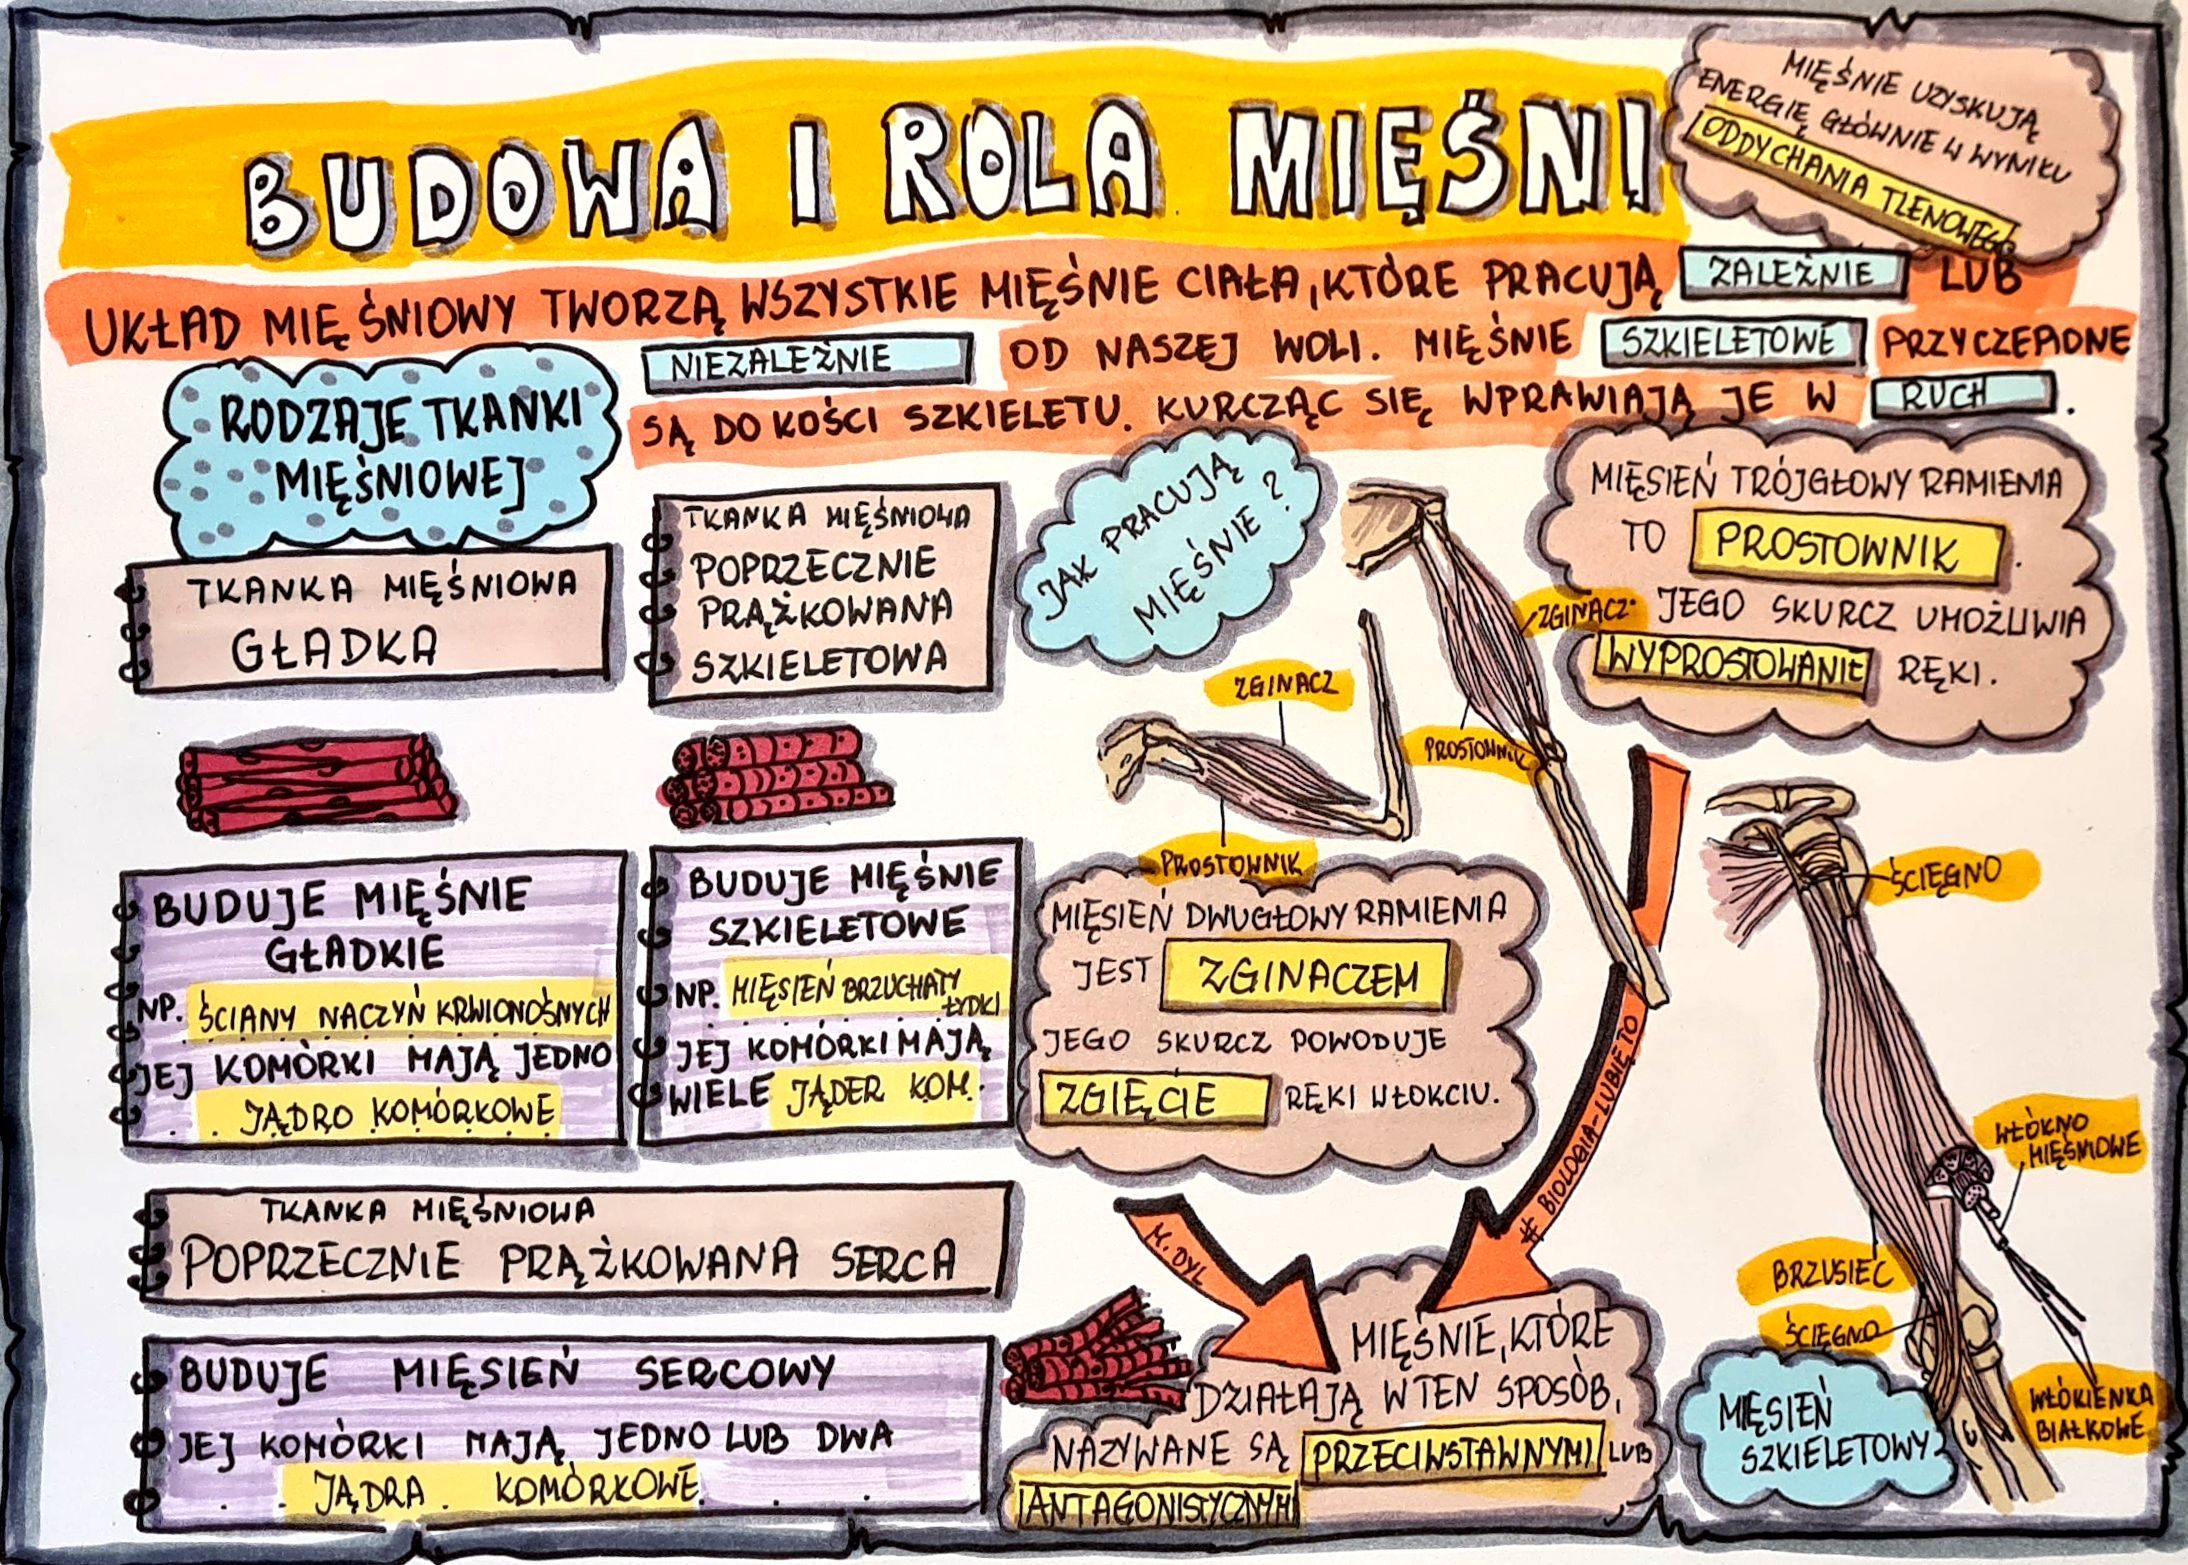 BUDOWA I ROLA MIĘŚNI
MIĘŚNIE UZYSKUJĄ
ENERGIĘ GŁÓWNIE W WYNIKU
ODDYCHANIA TLENOWEGO
UKŁAD MIĘŚNIOWY TWORZĄ WSZYSTKIE MIĘŚNIE CIAŁA, KTÓRE PRACUJĄ ZALEŻNIE LUB
NIEZALEŻNIE OD NASZEJ WOLI. MIĘŚNIE SZKIELETOWE PRZYCZEPIONE
SĄ DO KOŚCI SZKIELETU. KURCZĄC SIĘ WPRAWIAJĄ JE W RUCH.
RODZAJE TKANKI
MIĘŚNIOWEJ
TKANKA MIĘŚNIOWA
GŁADKA
BUDUJE MIĘŚNIE
GŁADKIE
NP. ŚCIANY NACZYŃ KRWIONOŚNYCH
JEJ KOMÓRKI MAJĄ JEDNO
JĄDRO KOMÓRKOWE
TKANKA MIĘŚNIOWA
POPRZECZNIE
PRĄŻKOWANA
SZKIELETOWA
BUDUJE MIĘŚNIE
SZKIELETOWE
NP. MIĘSIEŃ BRZUCHATY
ŁYDKI
JEJ KOMÓRKI MAJĄ
WIELE JĄDER KOM.
TKANKA MIĘŚNIOWA
POPRZECZNIE PRĄŻKOWANA SERCA
BUDUJE MIĘSIEŃ SERCOWY
JEJ KOMÓRKI MAJĄ JEDNO LUB DWA
JĄDRA KOMÓRKOWE
JAK PRACUJĄ
MIĘŚNIE?
ZGINACZ
PROSTOWNIK
ZGINACZ
PROSTOWNIK
MIĘSIEŃ TRÓJGŁOWY RAMIENIA
TO PROSTOWNIK.
JEGO SKURCZ UMOŻLIWIA
WYPROSTOWANIE RĘKI.
MIĘSIEŃ DWUGŁOWY RAMIENIA
JEST ZGINACZEM
JEGO SKURCZ POWODUJE
ZGIĘCIE RĘKI W ŁOKCIU.
M. DYL
# BIOLOGIA-LUBIĘ TO
MIĘŚNIE, KTÓRE
DZIAŁAJĄ W TEN SPOSÓB,
NAZYWANE SĄ PRZECIWSTAWNYMI LUB
ANTAGONISTYCZNYMI
ŚCIĘGNO
WŁÓKNO
MIĘŚNIOWE
BRZUSIEC
ŚCIĘGNO
WŁÓKIENKA
BIAŁKOWE
MIĘSIEŃ
SZKIELETOWY